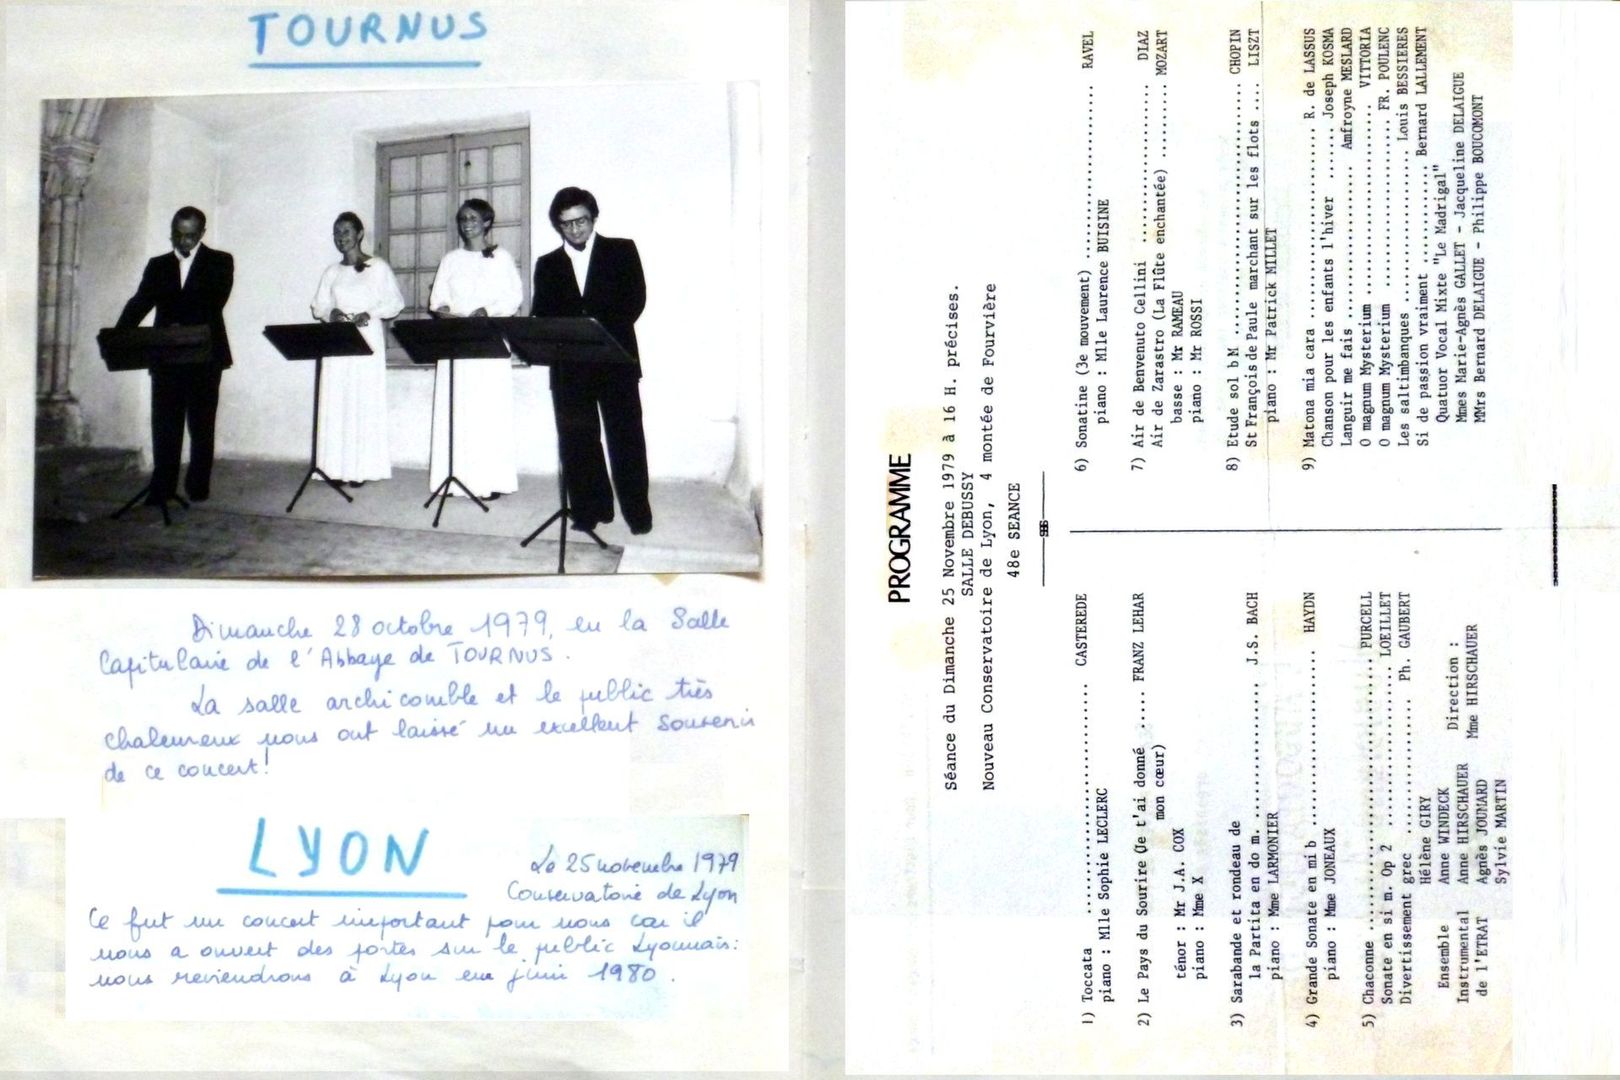 TOURNUS
Dimanche 28 octobre 1979, en la Salle
Capitulaire de l'Abbaye de TOURNUS.
La salle archi comble et le public très
chaleureux nous ont laissé un excellent souvenir
de ce concert!
LYON
Le 25 novembre 1979
Conservatoire de Lyon
Ce fut un concert important pour nous car il
nous a ouvert des portes sur le public Lyonnais:
nous reviendrons à Lyon en juin 1980.
PROGRAMME
Séance du Dimanche 25 Novembre 1979 à 16 H. précises.
SALLE DEBUSSY
Nouveau Conservatoire de Lyon, 4 montée de Fourvière
48e SEANCE
1) Toccata .............................. CASTEREDE
piano : Mlle Sophie LECLERC
2) Le Pays du Sourire (Je t'ai donné ..... FRANZ LEHAR
mon cœur)
ténor : Mr J.A. COX
piano : Mme X
3) Sarabande et rondeau de
la Partita en do m. .................. J.S. BACH
piano : Mme LARMONIER
4) Grande Sonate en mi b ...................... HAYDN
piano : Mme JONEAUX
5) Chaconne ................................ PURCELL
Sonate en si m. Op 2 .................... LOEILLET
Divertissement grec ................. Ph. GAUBERT
Hélène GIRY
Ensemble Anne WINDECK Direction :
Instrumental Anne HIRSCHAUER Mme HIRSCHAUER
de l'ETRAT Agnès JOUMARD
Sylvie MARTIN
6) Sonatine (3e mouvement) ...................... RAVEL
piano : Mlle Laurence BUISINE
7) Air de Benvenuto Cellini .................... DIAZ
Air de Zarastro (La Flûte enchantée) .......... MOZART
basse : Mr RAMEAU
piano : Mr ROSSI
8) Etude sol b M ............................. CHOPIN
St François de Paule marchant sur les flots .... LISZT
piano : Mr Patrick MILLET
9) Matona mia cara ........................ R. de LASSUS
Chanson pour les enfants l'hiver ....... Joseph KOSMA
Languir me fais .................... Amfroyne MESLARD
O magnum Mysterium ........................ VITTORIA
O magnum Mysterium ..................... FR. POULENC
Les saltimbanques .................. Louis BESSIERES
Si de passion vraiment ............. Bernard LALLEMENT
Quatuor Vocal Mixte "Le Madrigal"
Mmes Marie-Agnès GALLET - Jacqueline DELAIGUE
MMrs Bernard DELAIGUE - Philippe BOUCOMONT